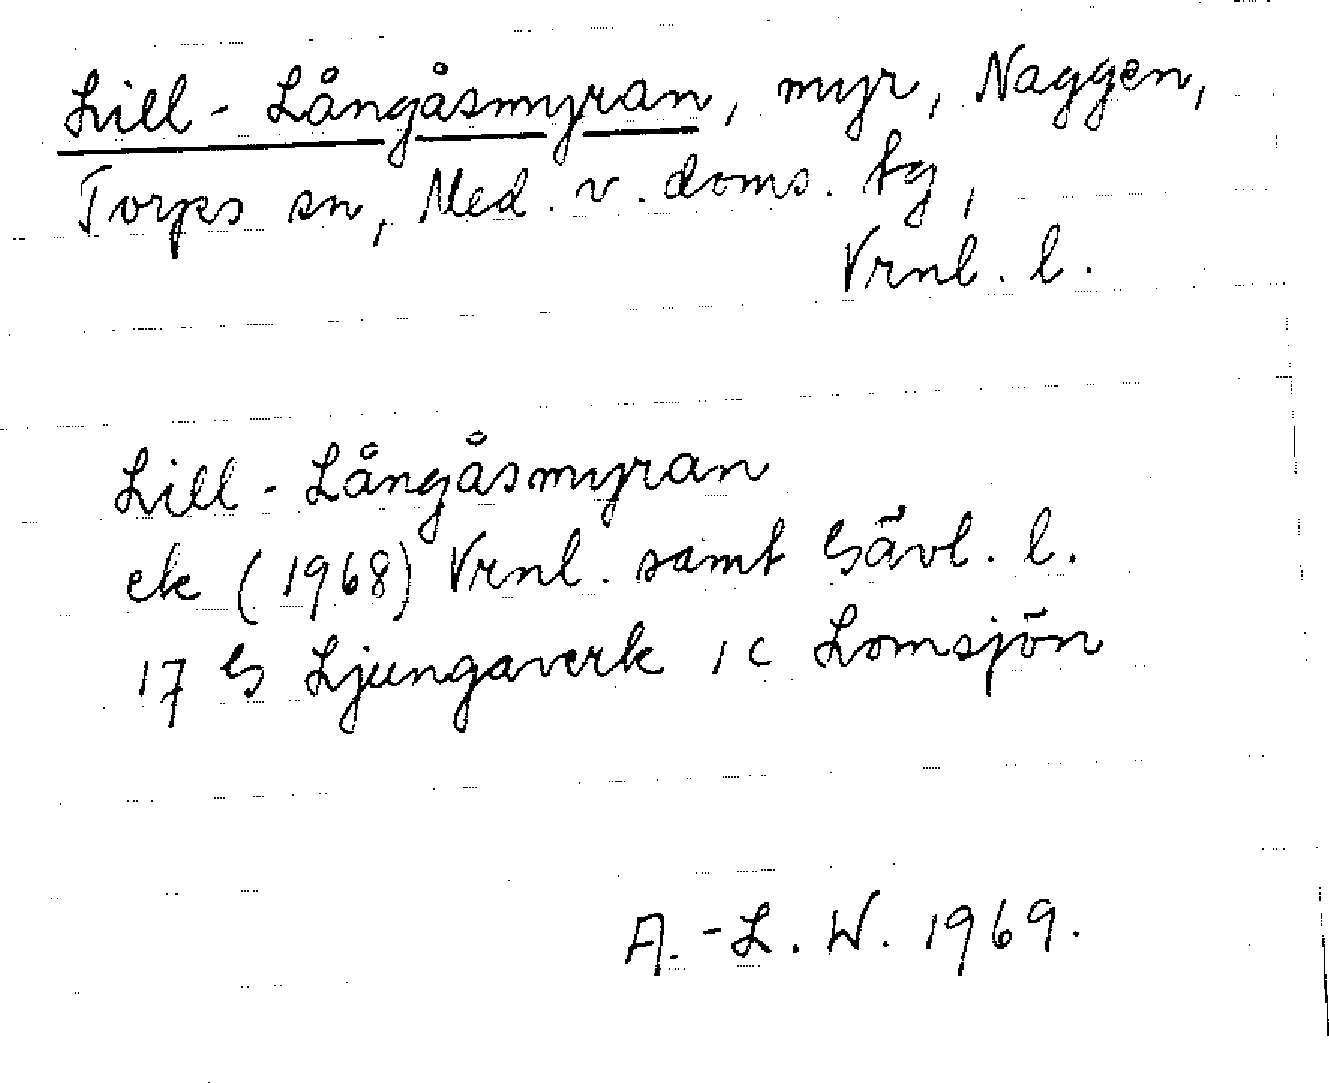 Lill-Långåsmyran, myr, Naggen,
Torps sn, Med. v. doms. tg,
Vrnl. l.
Lill-Långåsmyran
ek (1968) Vrnl. samt Gävl. l.
17 G Ljungaverk 1 c Lomsjön
A.-L. W. 1969.